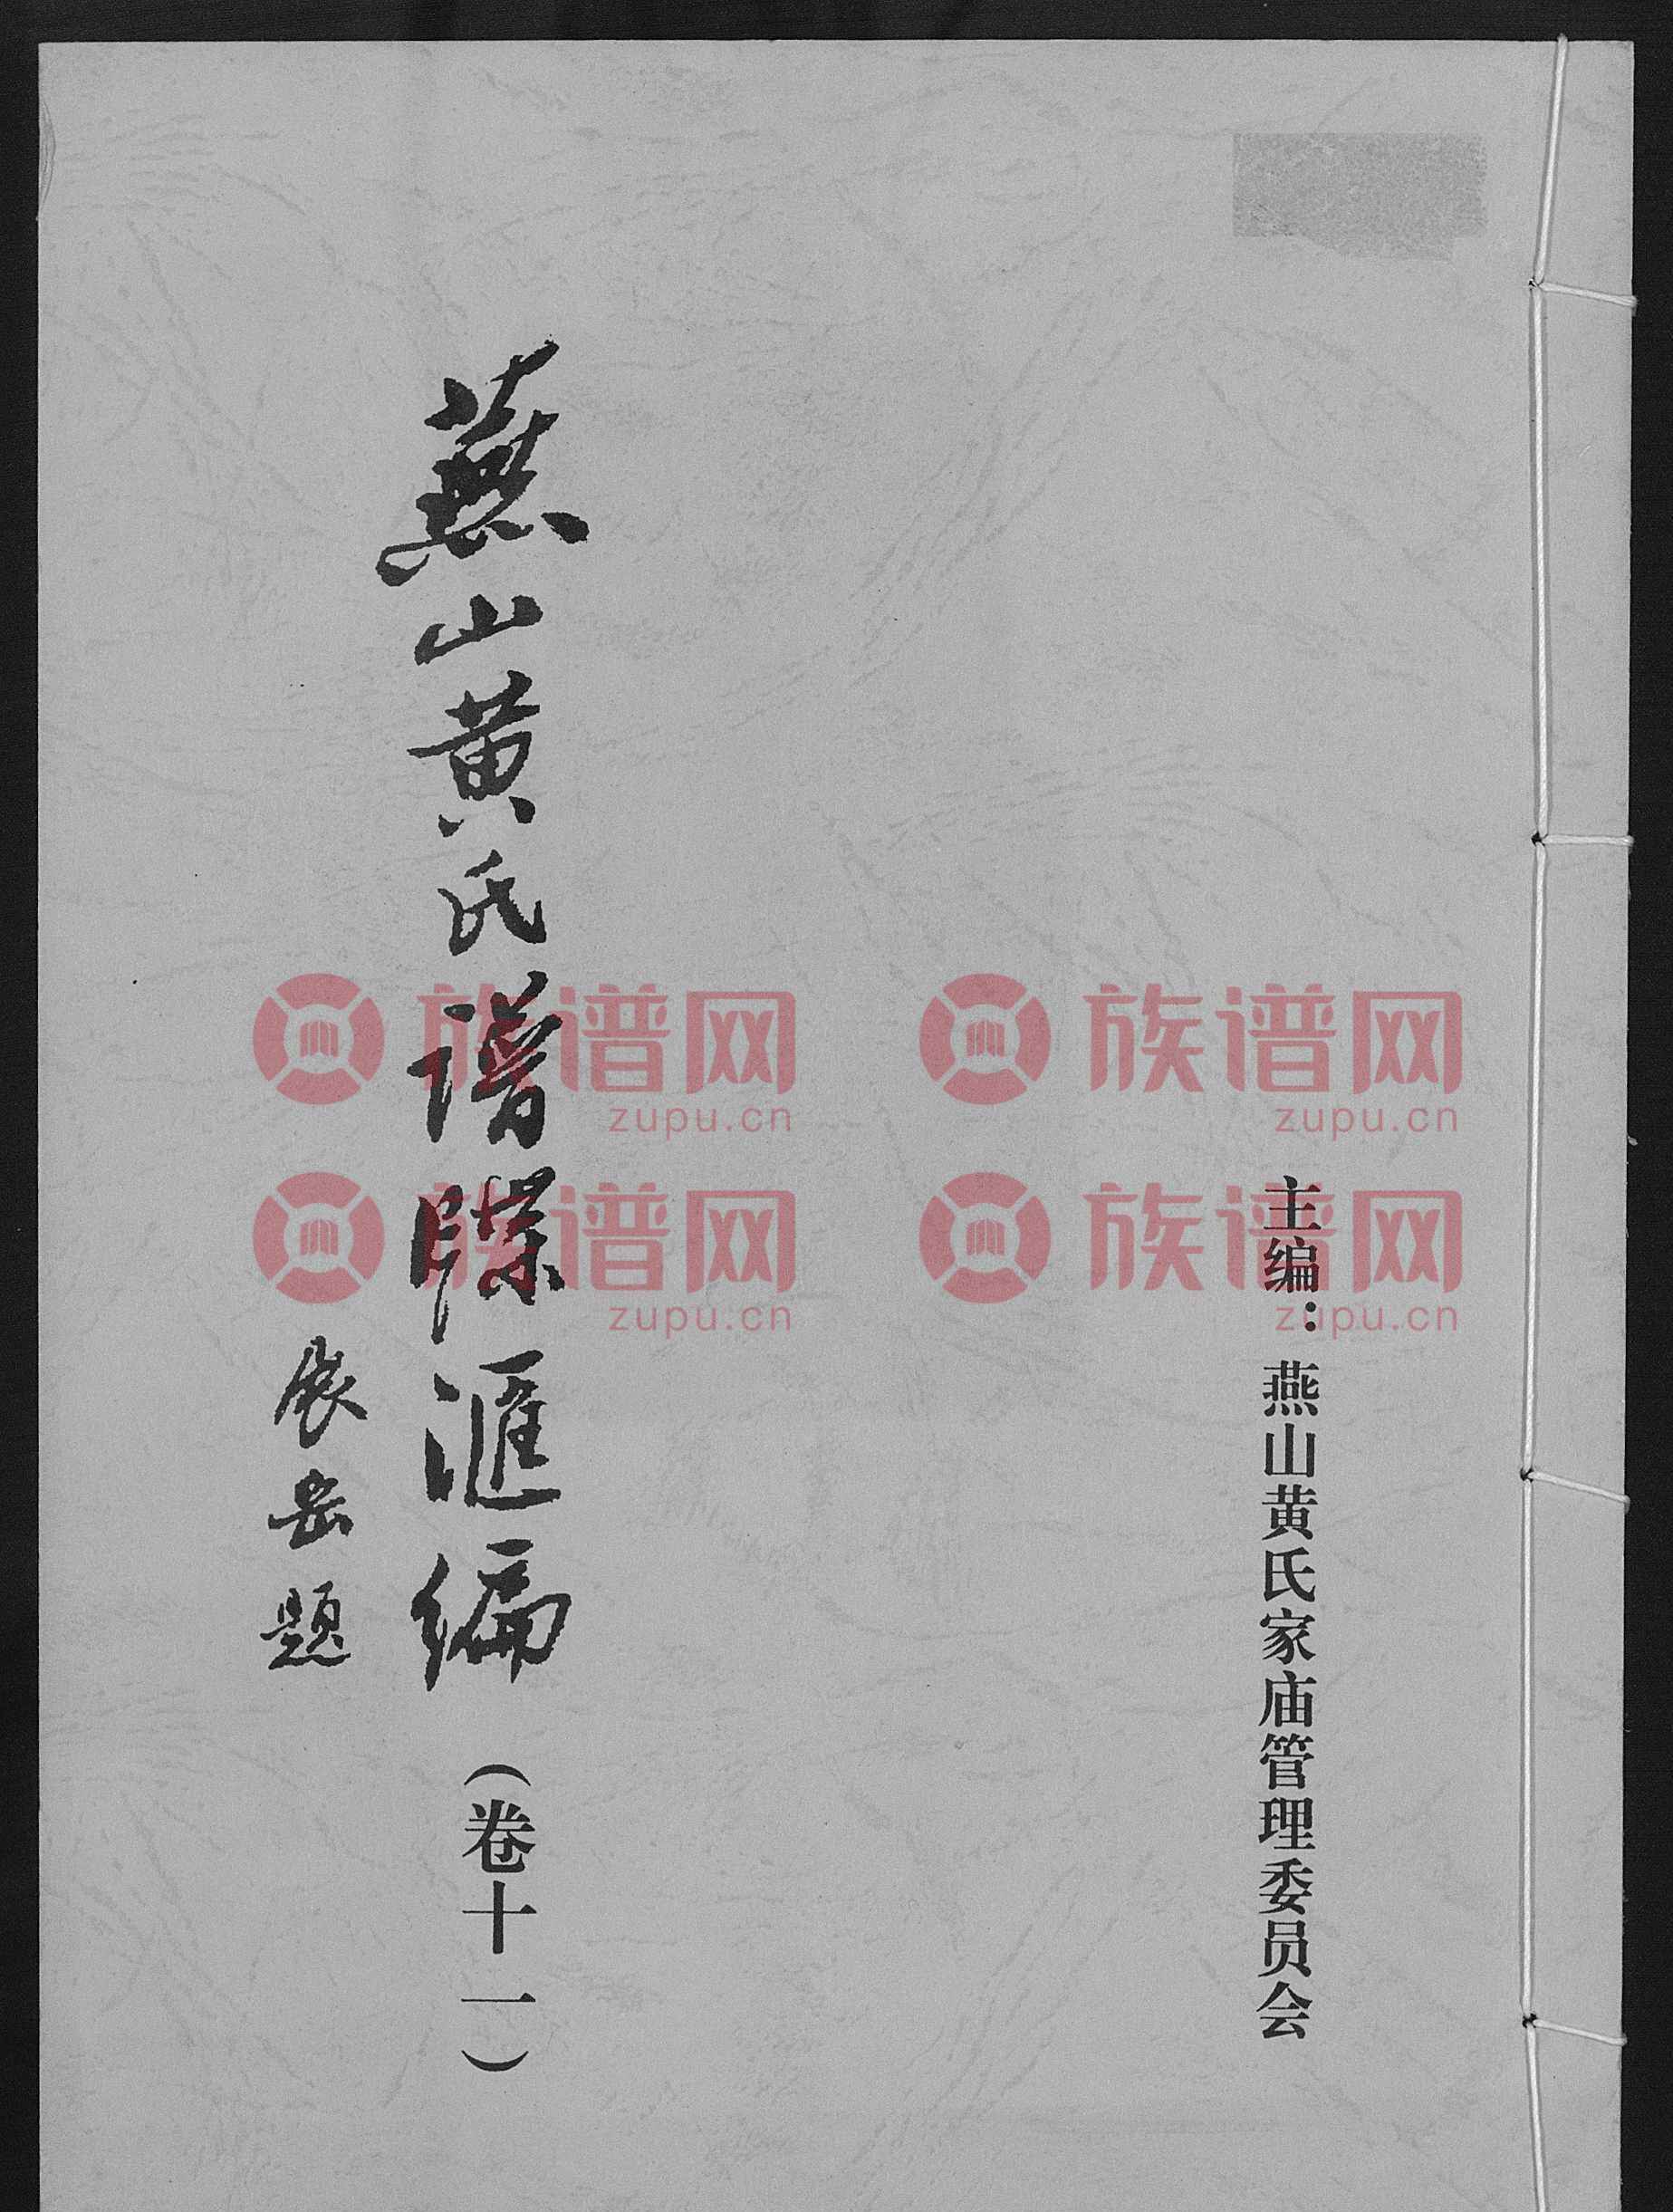 主编：燕山黄氏家庙管理委员会
燕山黄氏譜牒滙编（卷十一）
展岳题
族谱网
zupu.cn
族谱网
zupu.cn
族谱网
zupu.cn
族谱网
zupu.cn